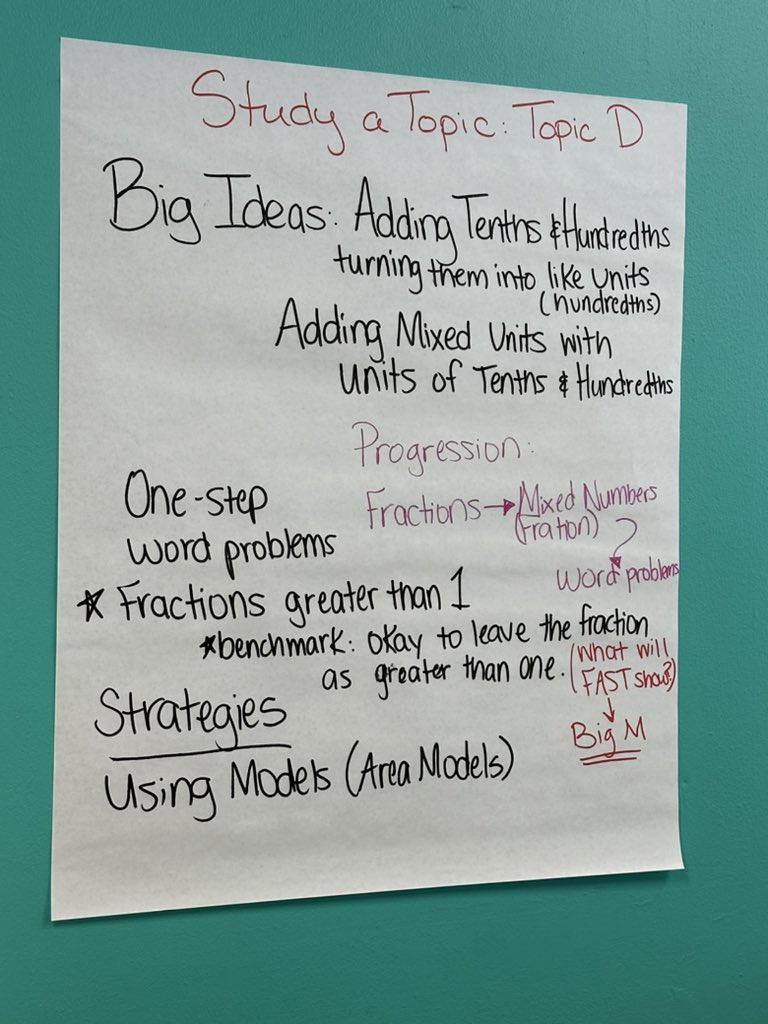 Study a Topic: Topic D
Big Ideas: Adding Tenths & Hundredths
turning them into like units
(hundredths)
Adding Mixed Units with
units of Tenths & Hundredths
Progression:
Fractions → Mixed Numbers
(Fration)
Word problems
One-step
word problems
* Fractions greater than 1
*benchmark: okay to leave the fraction
as greater than one.
(What will
FAST show?)
↓
Big M
Strategies
Using Models (Area Models)